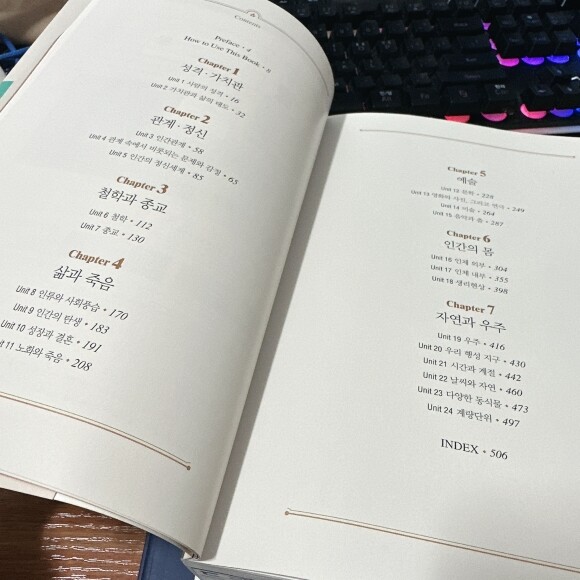 6
CONTENTS
Preface • 4
How to Use This Book • 8
Chapter 1
성격·가치관
Unit 1 사람의 성격 • 16
Unit 2 가치관과 삶의 태도 • 32
Chapter 2
관계·정신
Unit 3 인간관계 • 58
Unit 4 관계 속에서 비롯되는 문제와 감정 • 65
Unit 5 인간의 정신세계 • 85
Chapter 3
철학과 종교
Unit 6 철학 • 112
Unit 7 종교 • 130
Chapter 4
삶과 죽음
Unit 8 인류와 사회풍습 • 170
Unit 9 인간의 탄생 • 183
Unit 10 성장과 결혼 • 191
Unit 11 노화와 죽음 • 208
Chapter 5
예술
Unit 12 문학 • 228
Unit 13 영화와 사진, 그리고 연극 • 249
Unit 14 미술 • 264
Unit 15 음악과 춤 • 287
Chapter 6
인간의 몸
Unit 16 인체 외부 • 304
Unit 17 인체 내부 • 355
Unit 18 생리현상 • 398
Chapter 7
자연과 우주
Unit 19 우주 • 416
Unit 20 우리 행성 지구 • 430
Unit 21 시간과 계절 • 442
Unit 22 날씨와 자연 • 460
Unit 23 다양한 동식물 • 473
Unit 24 계량단위 • 497
INDEX • 506